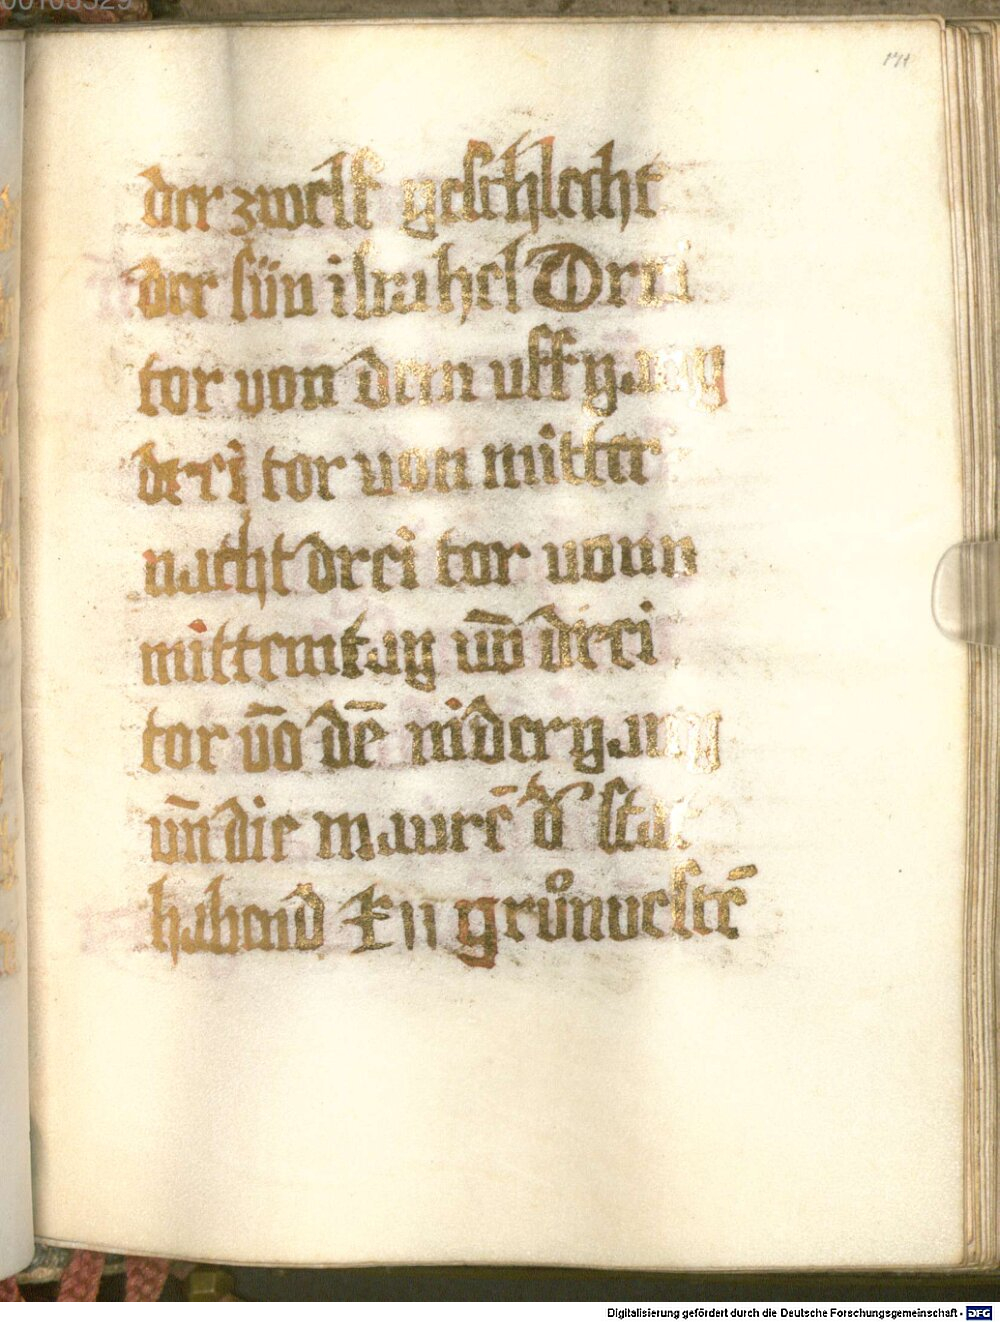 00103329
171
der zwelf geschlecht
der sün israhel Drei
tor von dem uffgang
drei tor von mitter
nacht drei tor vonn
mittemtag uō drei
tor vō dē nidergang
vn̄ die maurē d' stat
habend xii grůnvestē
Digitalisierung gefördert durch die Deutsche Forschungsgemeinschaft - DFG